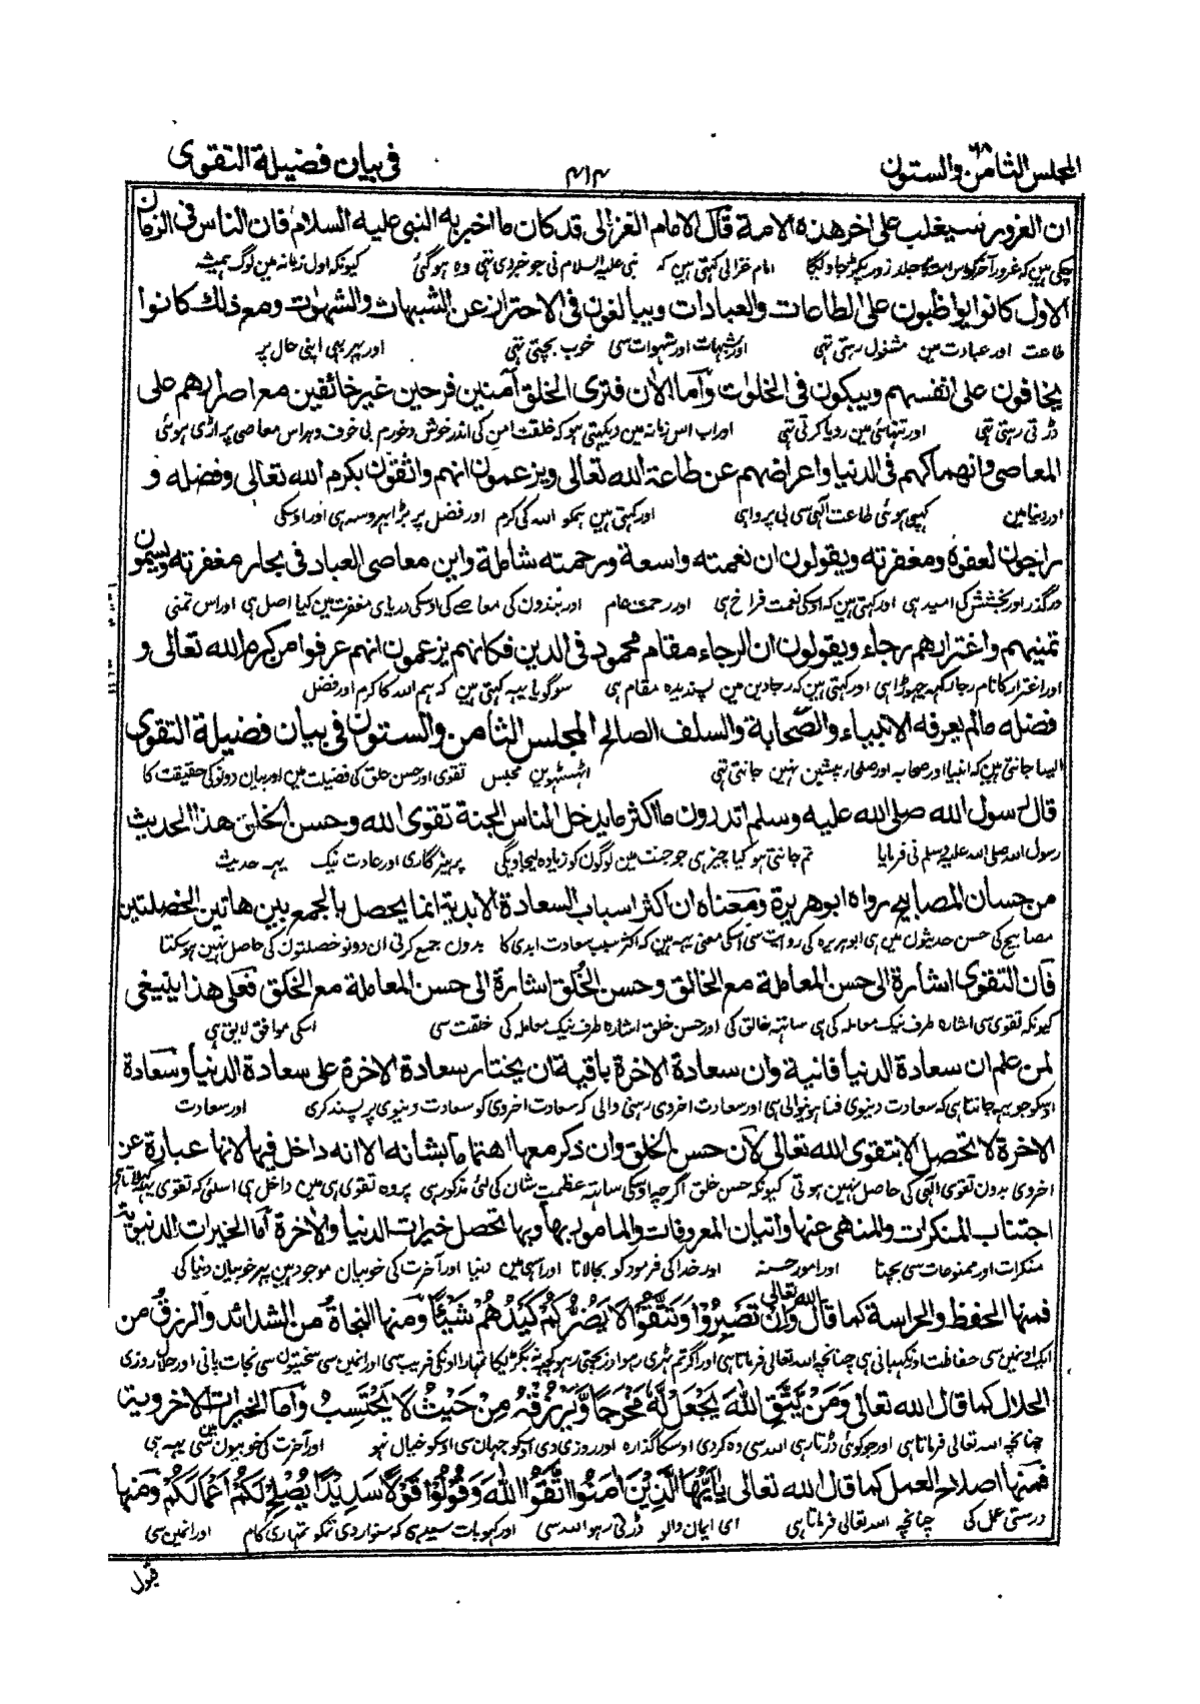 المجلس الثامن والستون
٤١٤
فی بیان فضیلة التقوی
ان الغرور سیغلب علی اخر هذه الامة قال الامام الغزالی قد کان ما اخبر به النبی علیه السلام فان الناس فی الزمان
چکی ہین کہ غرور آخر کو اس امت کی جلد زور پکڑ جاویگا امام غزالی کہتی ہین کہ نبی علیہ السلام نی جو خبر دی تہی وہ ہوگئی کیونکہ اول زمانہ مین لوگ ہمیشہ
الاول کانوا یواظبون علی الطاعات والعبادات ویبالغون فی الاحتراز عن الشبهات والشهوات ومع ذلک کانوا
طاعت اور عبادت مین مشغول رہتی تہی اور شبہات اور شہوات سی خوب بچتی تہی اور پہر بہی اپنی حال پر
یخافون علی انفسهم ویبکون فی الخلوات واما الان فتری الخلق آمنین فرحین غیر خائفین مع اصرارهم علی
ڈرتی رہتی تہی اور تنہائی مین رویا کرتی تہی اور اب اس زمانہ مین دیکہتی ہو کہ خلقت امن کی اندر خوش و خورم بی خوف و ہراس معاصی پر اڑی ہوئی
المعاصی وانهماکهم فی الدنیا واعراضهم عن طاعة الله تعالی ویزعمون انهم واثقون بکرم الله تعالی وفضله و
اور دنیا مین کہپی ہوئی طاعت الٰہی سی بی پرواہی اور کہتی ہین ہمکو اللہ کی کرم اور فضل پر بڑا بہروسہ ہی اور اوسکی
راجون لعفوه ومغفرته ویقولون ان نعمته واسعة ورحمته شاملة واین معاصی العباد فی بحار مغفرته ویسمون
درگذر اور بخشش کی امید ہی اور کہتی ہین کہ اوسکی نعمت فراخ ہی اور رحمت عام اور بندون کی معاصی کی اوسکی دریای مغفرت مین کیا اصل ہی اور اس تمنی
تمنیهم واغترارهم رجاء ویقولون ان الرجاء مقام محمود فی الدین فکانهم یزعمون انهم عرفوا من کرم الله تعالی و
اور اغترار کا نام رجا رکہہ چہوڑا ہی اور کہتی ہین کہ رجا دین مین پسندیدہ مقام ہی سو گویا یہہ کہتی ہین کہ ہم اللہ کا کرم اور فضل
فضله مالم یعرفه الانبیاء والصحابة والسلف الصالح المجلس الثامن والستون فی بیان فضیلة التقوی
ایسا جانتی ہین کہ انبیا اور صحابہ اور صلحاء پیشین نہین جانتی تہی اٹہسٹہوین مجلس تقوی اور حسن خلق کی فضیلت مین اور بیان دونو کی حقیقت کا
قال رسول الله صلی الله علیه وسلم اتدرون ما اکثر ما یدخل الناس الجنة تقوی الله وحسن الخلق هذا الحدیث
رسول اللہ صلی اللہ علیہ وسلم نی فرمایا تم جانتی ہو کیا چیز ہی جو جنت مین لوگون کو زیادہ لیجاویگی پرہیزگاری اور عادت نیک یہہ حدیث
من حسان المصابیح رواه ابو هریرة ومعناه ان اکثر اسباب السعادة الابدیة انما یحصل بالجمع بین هاتین الخصلتین
مصابیح کی حسن حدیثون مین ہی ابو ہریرہ کی روایت سی اسکی معنی یہہ ہین کہ اکثر سبب سعادت ابدی کا بدون جمع کرنی ان دونو خصلتون کی حاصل نہین ہو سکتا
فان التقوی اشارة الی حسن المعاملة مع الخالق وحسن الخلق اشارة الی حسن المعاملة مع الخلق فعلی هذا ینبغی
کیونکہ تقوی سی اشارہ طرف نیک معاملہ کی ہی ساتہہ خالق کی اور حسن خلق اشارہ طرف نیک معاملہ کی خلقت سی اسکی موافق لایق ہی
لمن علم ان سعادة الدنیا فانیة وان سعادة الاخرة باقیة ان یختار سعادة الاخرة علی سعادة الدنیا وسعادة
اوسکو جو یہہ جانتا ہی کہ سعادت دنیوی فنا ہونیوالی ہی اور سعادت اخروی رہنی والی کہ سعادت اخروی کو سعادت دنیوی پر پسند کری اور سعادت
الاخرة لا تحصل الا بتقوی الله تعالی لان حسن الخلق وان ذکر معها اهتماما بشانه الا انه داخل فیها لانها عبارة عن
اخروی بدون تقوی الٰہی کی حاصل نہین ہوتی کیونکہ حسن خلق اگرچہ اوسکی ساتہہ عظمت شان کی لئی مذکور ہی پر وہ تقوی ہی مین داخل ہی اسلئی کہ تقوی
اجتناب المنکرات والمنهی عنها واتیان المعروفات والمامور بها وبها تحصل خیرات الدنیا والاخرة اما الخیرات الدنیویة
منکرات اور ممنوعات سی بچنا اور امور حسنہ اور خدا کی فرمودہ کو بجالانا اور اسی مین دنیا اور آخرت کی خوبیان موجود ہین پہر خوبیان دنیا کی
فمنها الحفظ والحراسة کما قال الله تعالی وَاِنْ تَصْبِرُوْا وَتَتَّقُوْا لَا یَضُرُّکُمْ کَیْدُهُمْ شَیْئًا ومنها النجاة من الشدائد والرزق من
ایک اونمین سی حفاظت اور نگہبانی ہی چنانچہ اللہ تعالی فرماتا ہی اور اگر تم ٹہری رہو اور بچتی رہو کچہ نہ بگڑیگا تمہارا اونکی فریب سی اور انمین سی سختیون سی نجات پانی اور حلال روزی
الحلال کما قال الله تعالی وَمَنْ یَّتَّقِ اللهَ یَجْعَلْ لَّهٗ مَخْرَجًا وَّیَرْزُقْهُ مِنْ حَیْثُ لَا یَحْتَسِبُ واما الخیرات الاخرویة
چنانچہ اللہ تعالی فرماتا ہی اور جو کوئی ڈرتا رہی اللہ سی وہ کردی اوسکا گذارہ اور روزی دی اوسکو جہان سی اوسکو خیال نہو اور آخرت کی خوبیون مین سی یہہ ہی
فمنها اصلاح العمل کما قال الله تعالی یٰاَیُّهَا الَّذِیْنَ اٰمَنُوا اتَّقُوا اللهَ وَقُوْلُوْا قَوْلًا سَدِیْدًا یُّصْلِحْ لَکُمْ اَعْمَالَکُمْ ومنها
درستی عمل کی چنانچہ اللہ تعالی فرماتا ہی ای ایمان والو ڈرتی رہو اللہ سی اور کہو بات سیدہی کہ سنوار دی تمکو تمہاری کام اور انمین سی
قبول